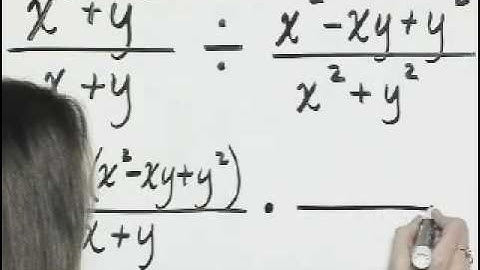 x + y ÷ x² - xy + y²
x + y x² + y²
(x² - xy + y²) ·
x + y